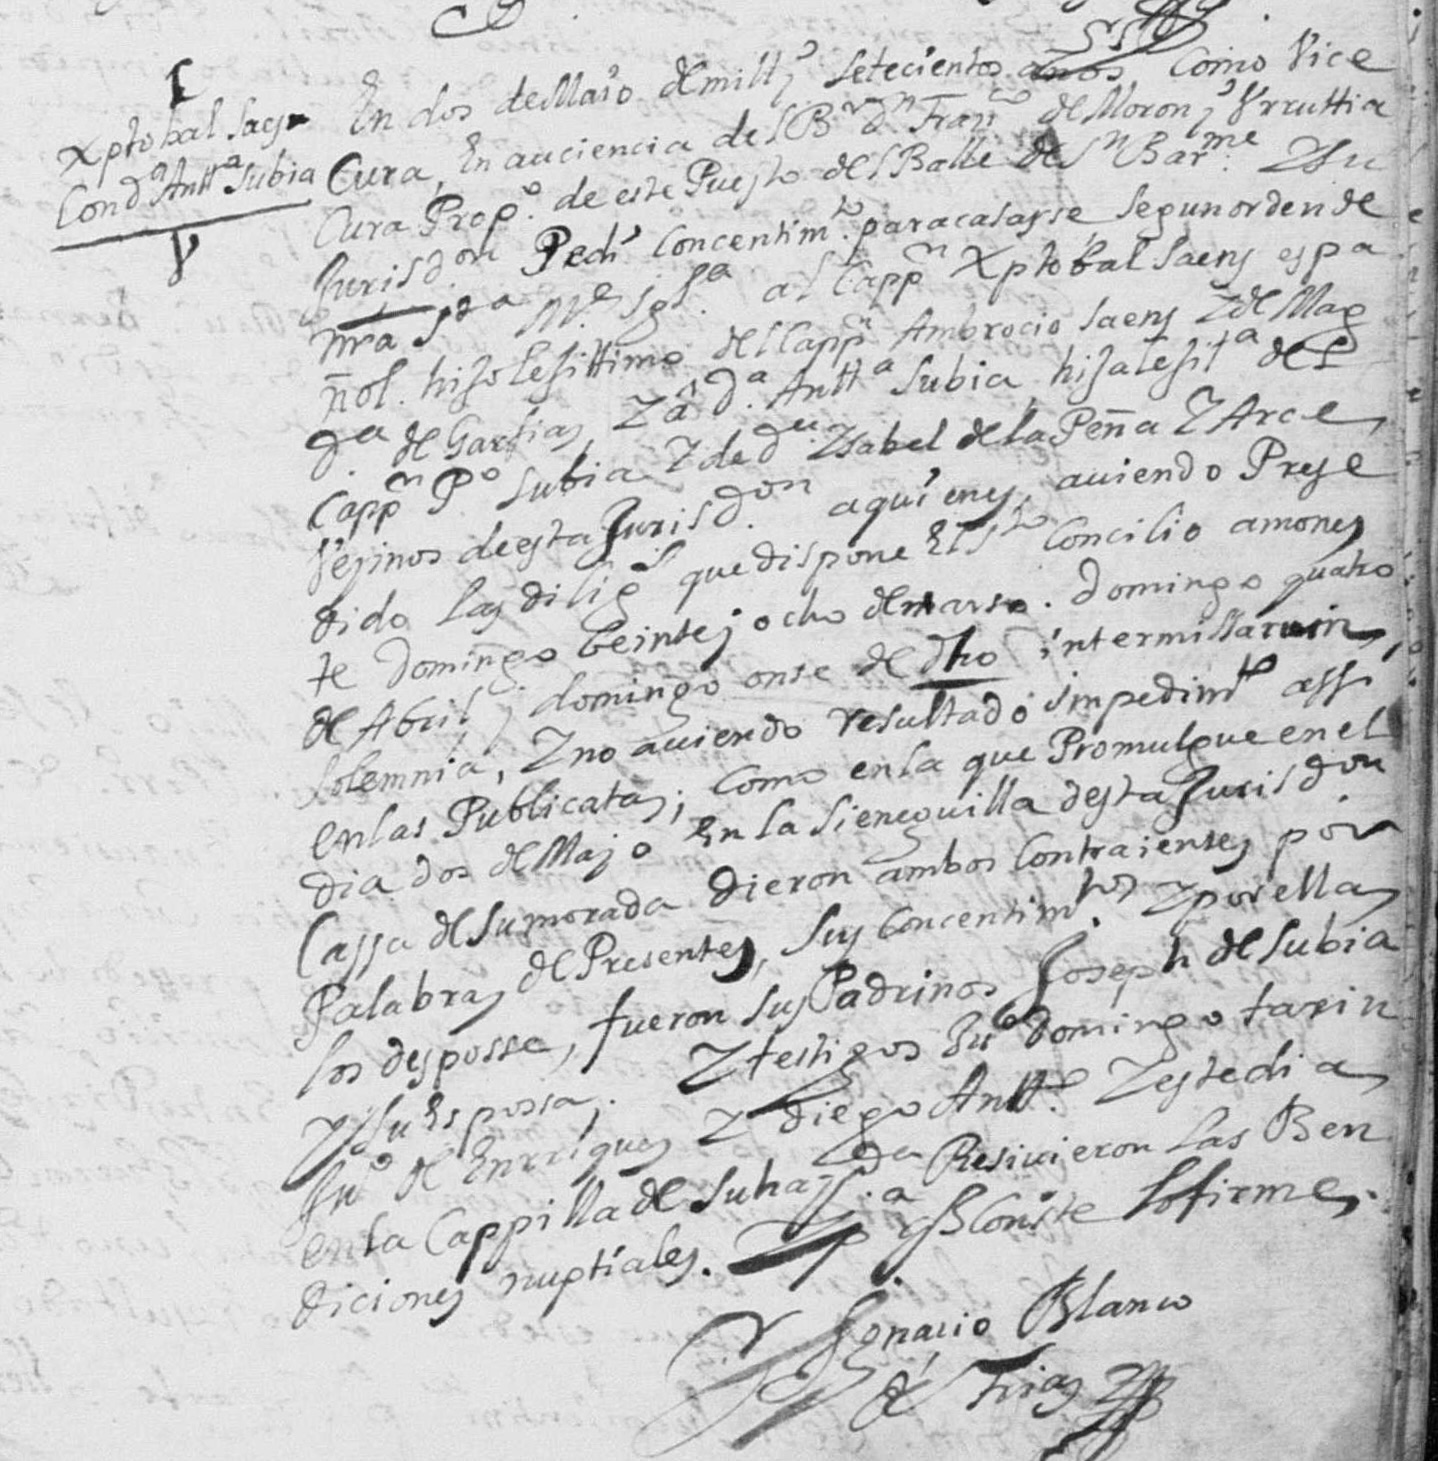 Xptobal Saenz
Con dª Anttª Subia
En dos de Maio de mill y setecientos años, Como Vice
Cura, En auciencia del Br Dn Franco de Moron y Vrruttia
Cura Propo. de este Puesto del Balle de Sn Barme. Y su
Jurisdon Pedi Concentimto. para casarse segun orden de
nrã Sta Me Iglª. al Cappn Xptobal Saens espa
ñol. hijo lefittimo del Cappn Ambrocio Saens Y de Mag
da. de Garfias, Y a dª. Anttª Subia, hija lefitª del
Cappn Po Subia Y de Da. Ysabel de la Peña Y Arce,
Vezinos de esta Jurisdon. a quienes, auiendo Prese
dido las diligs que dispone El Sto Concilio amones
te Domingo beinte y ocho de marso. Domingo quatro
de Abril y domingo onse de dho intermissarum,
solemnia, Y no auiendo resultado impedimto assi
en las Publicatas; Como en la que Promulgue en el
dia dos de Mayo En la Sieneguilla desta Jurisdon.
Cassa de su morada dieron ambos Contraientes por
Palabras de Presentes, Sus Concentimtos. Y por ellas
los desposse, fueron sus Padrinos Joseph de Subia
Y su Esposa,. Y testigos Juo Domingo tarin
Juo de Enrriques Y diego Antto. Y este dia
en la Cappilla de su hazda. Resiuieron las Ben
diciones nuptiales. Y pª q Conste lo firme.
Ygnacio Blanco
de Frias